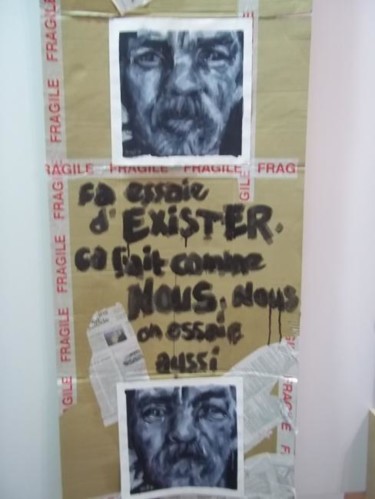 FRAGILE FRAGILE FRAGILE FRAG
ça essaie
d'EXISTER.
ça fait comme
NOUS, NOUS
on essaie
aussi
FRAGILE
FRAGILE
FRAGILE
FRAGILE
FRAGILE
GILE
GILE
FRAGILE F